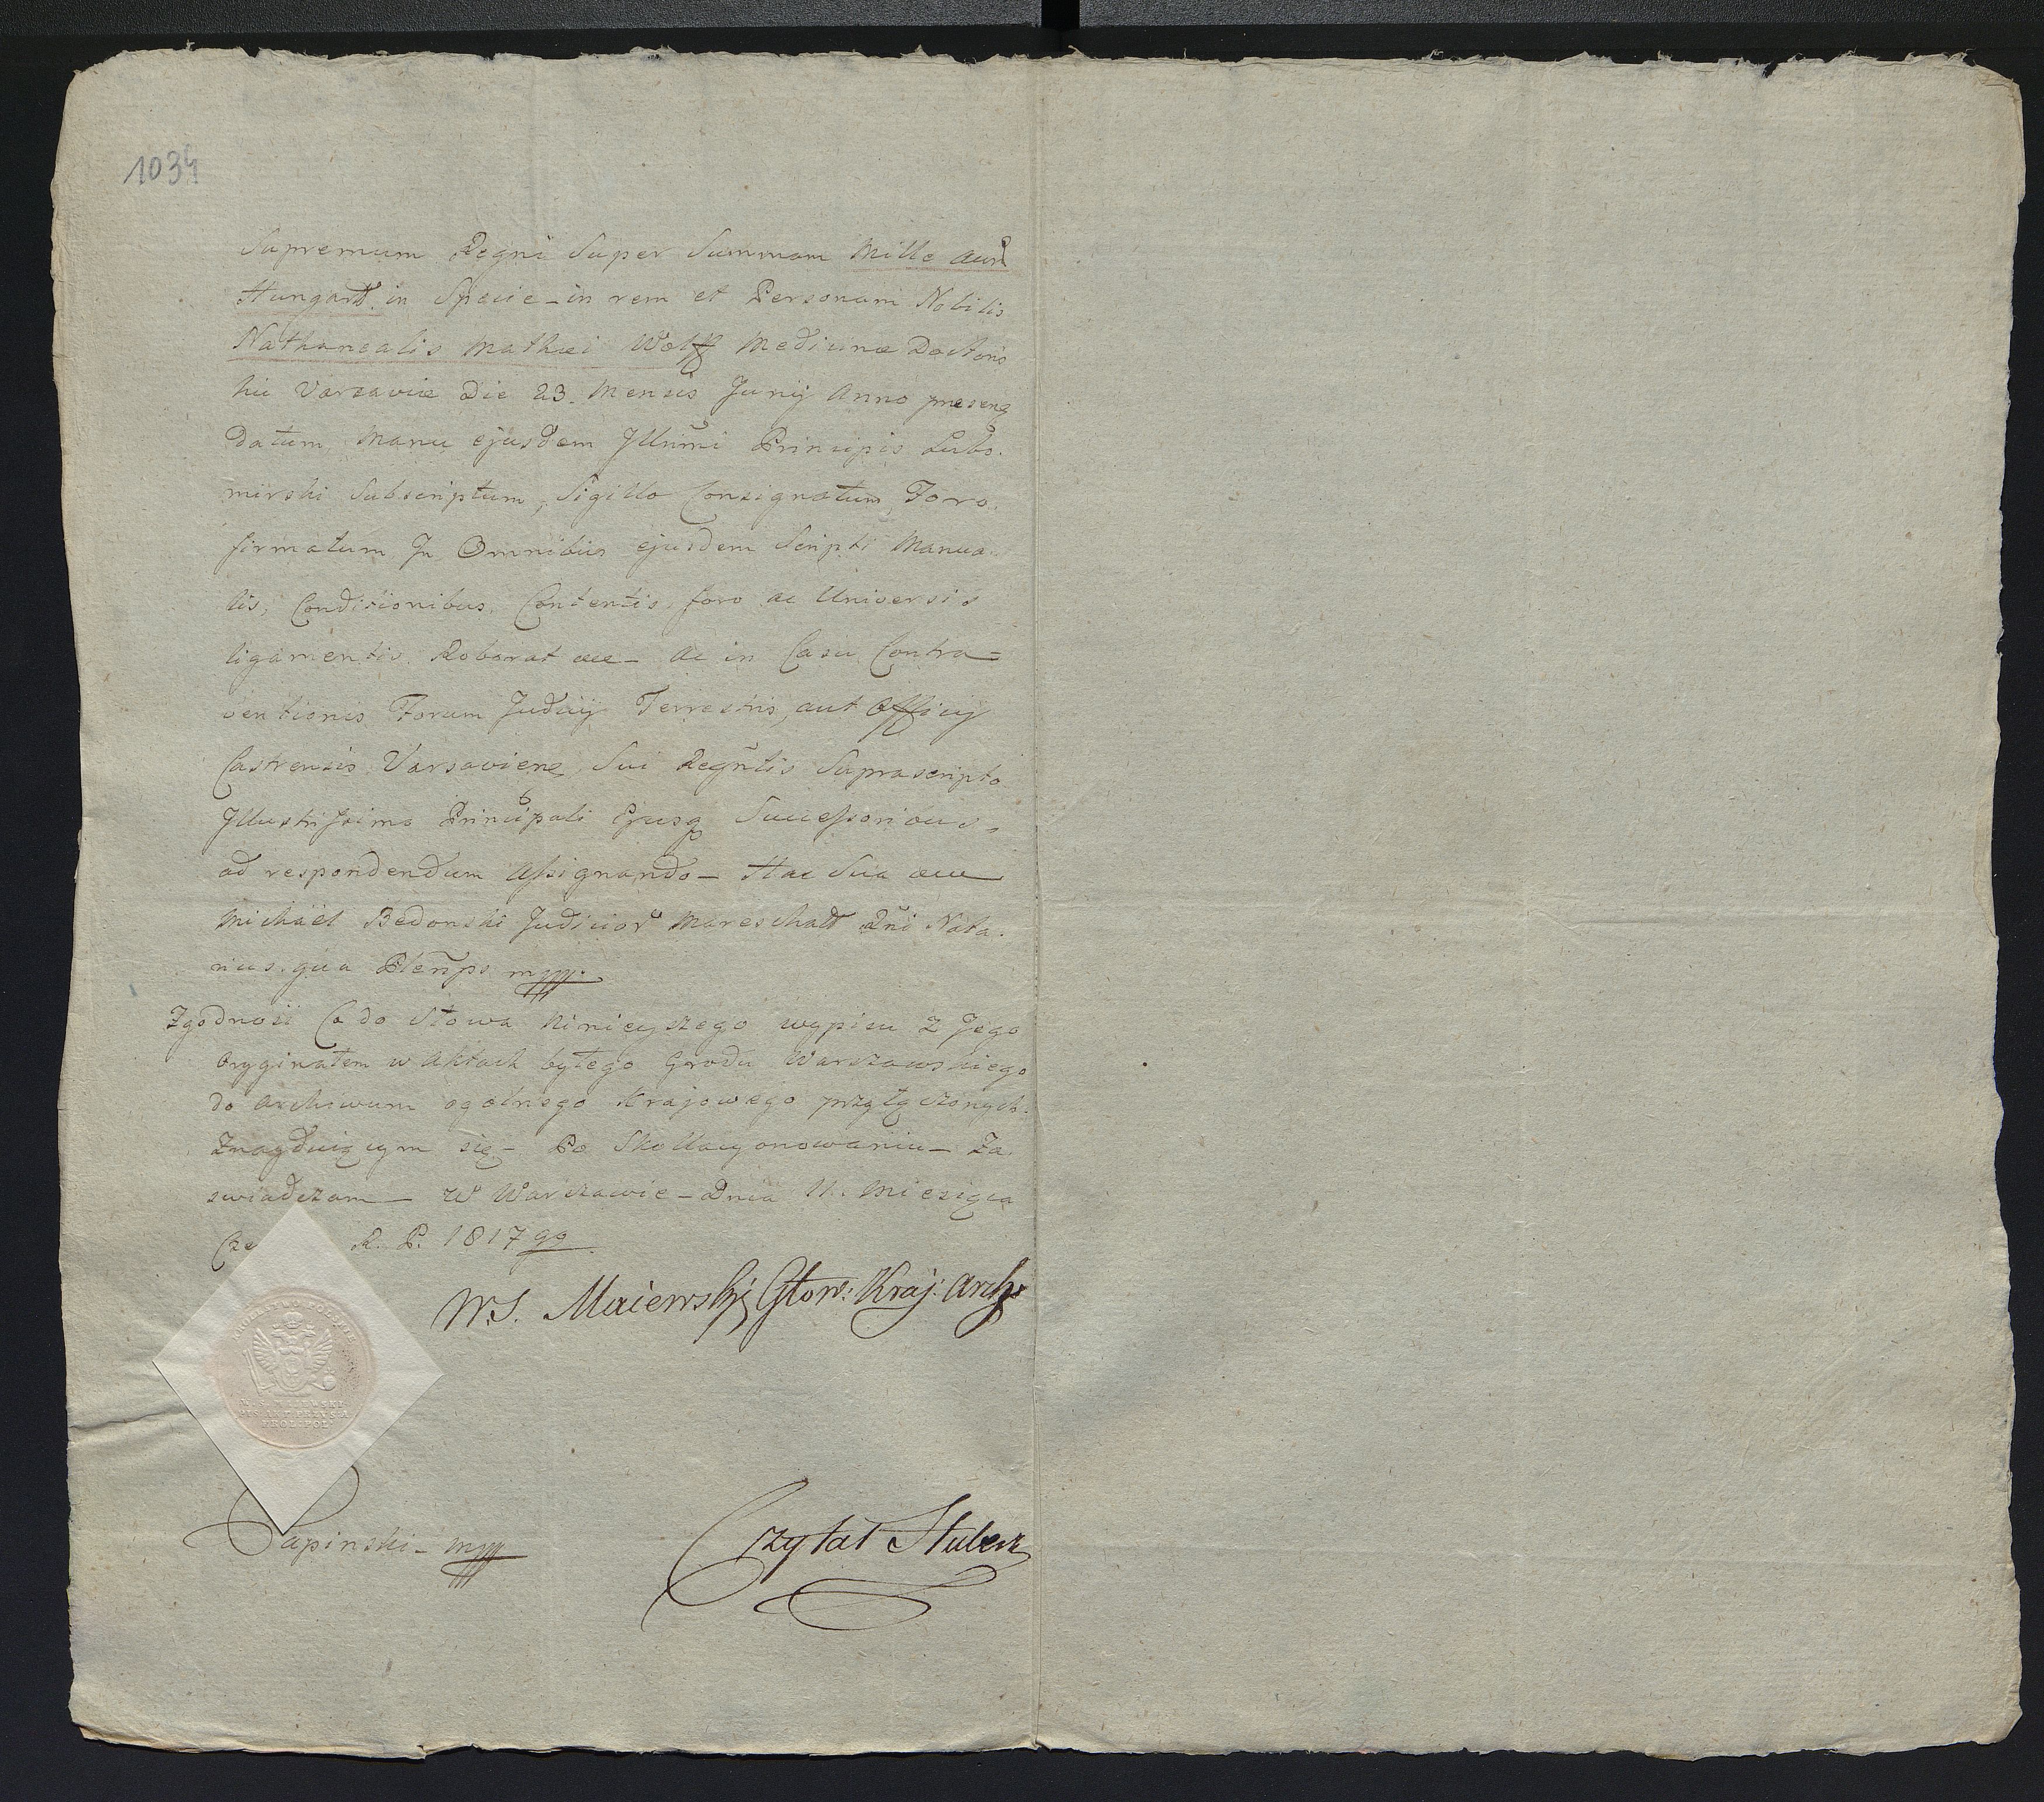 1034
Supremum Regni Super Summam Mille Aur
Hungard in Specie - in rem et Personam Nobilis
Nathanealis Mathæi Wolff Medicinæ Doctoris
hic Varsaviæ Die 23. Mensis Junij Anno præsenz
datum, Manu ejusdem Jllmi Principis Lubo.
mirski Subscriptum, Sigillo Consignatum, Foro.
firmatum, Jn Omnibus ejusdem Scripti Manua.
lis, Conditionibus, Contentis, foro ac Universis
ligamentis. Roborat æce - Ac in Casu Contra=
ventionis Forum Judicij Terrestris, aut Officij
Castrensis Varsaviens, Sui Regntis Suprascripto
Jllustrissimo Principali Ejusq Successoribus,
ad respondendum Assignando - Hac Sua æce
Michäel Bedonski Judicior Mareschald Rni Nota.
rius. qua Plenps mppp.
Zgodność Co do Słowa ninieyszego wypisu z Jego
Oryginałem w Aktach byłego Grodu Warszawskiego
do Archiwum ogólnego Krajowego przyłączonych.
Znayduiącym się - Po Skollacyonowaniu - Za
swiadczam - W Warszawie - Dnia 11. Miesiąca
Cze R. P. 1817
W. S. Maiewski Głow: Kraj: Arch:
KROLESTWO POLSKIE
Lapinski - mppp
Czytał Stuberz